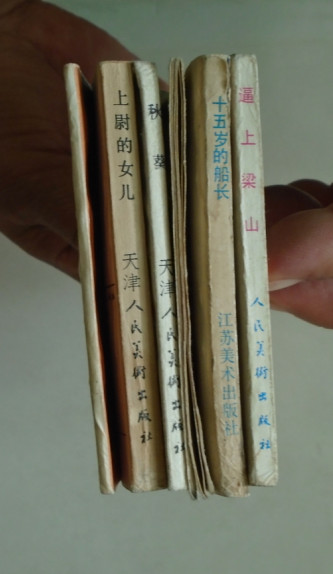 上尉的女儿
天津人民美术出版社
秋葵
天津人民美术出版社
十五岁的船长
江苏美术出版社
逼上梁山
人民美術出版社